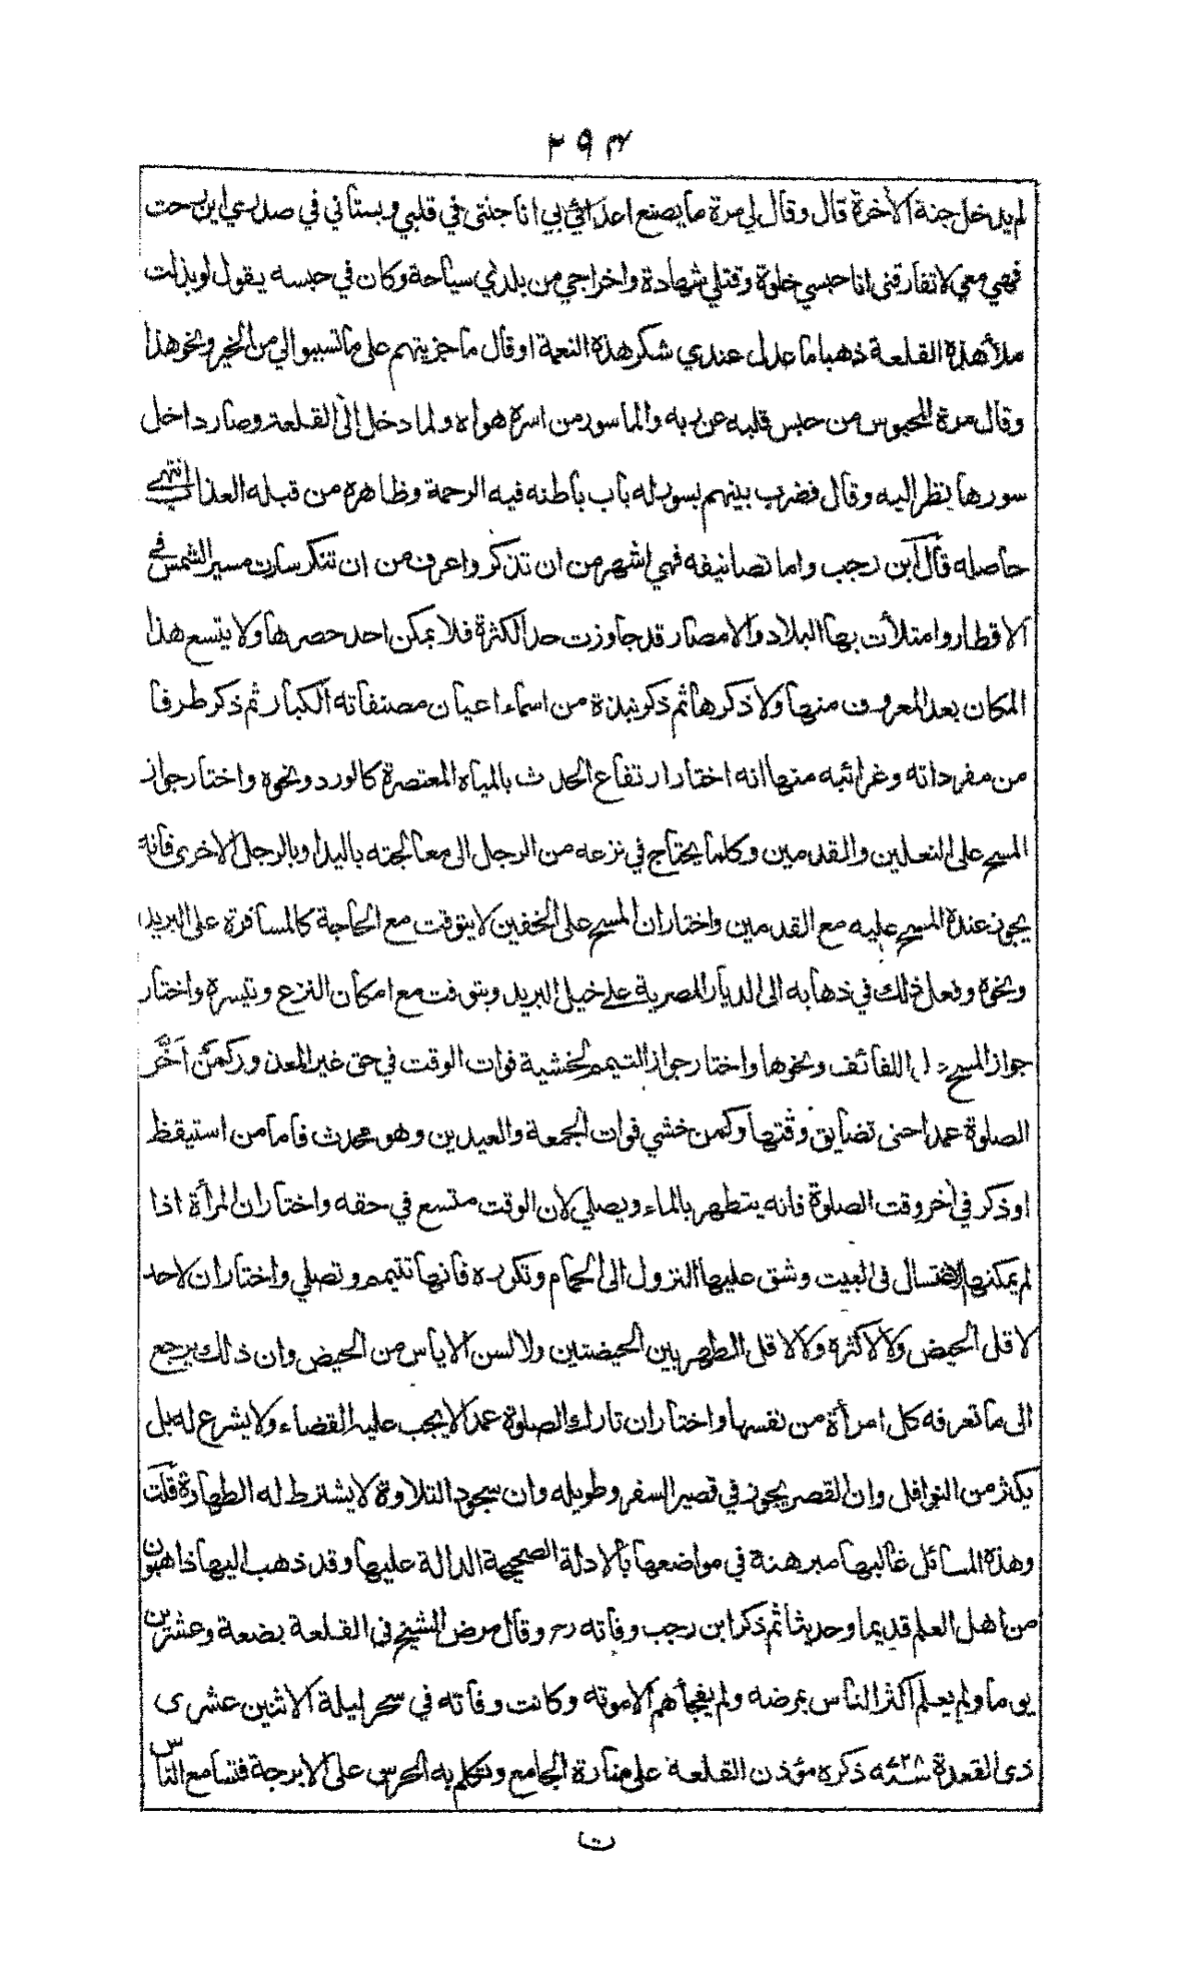 ۲۹۳
لم يدخل جنة الأخرة قال وقال لي مرة ما يصنع اعدائي بي انا جنتي في قلبي وبستاني في صدري اين رحت
فهي معي لا تفارقني انا حبسي خلوة وقتلي شهادة واخراجي من بلدي سياحة وكان في حبسه يقول لو بذلت
ملأ هذة القلعة ذهبا ما عدل عندي شكر هذة النعمة او قال ما جزيتهم على ما تسببوا الي من الخير ونحو هذا
وقال مرة المحبوس من حبس قلبه عن ربه والماسور من اسرة هواه ولما دخل الى القلعة وصار داخل
سورها نظر اليه وقال فضرب بينهم بسور له باب باطنه فيه الرحمة وظاهره من قبله العذاب انتهى
حاصله قال ابن رجب واما تصانيفه فهي اشهر من ان تذكر واعرف من ان تنكر سارت مسير الشمس في
الاقطار وامتلأت بها البلاد والامصار قد جاوزت حد الكثرة فلا يمكن احد حصرها ولا يتسع هذا
المكان بعد المعروف منها ولا ذكرها ثم ذكر نبذة من اسماء اعيان مصنفاته الكبار ثم ذكر طرفا
من مفرداته وغرائبه منها انه اختار ارتفاع الحدث بالمياه المعتصرة كالورد ونحوه واختار جواز
المسح على النعلين والقدمين وكلما يحتاج في نزعه من الرجل الى معالجته باليد او بالرجل الاخرى فانه
يجوز عندة المسح عليه مع القدمين واختار ان المسح على الخفين لا يتوقت مع الحاجة كالمسافرة على البريد
ونحوه وفعل ذلك في ذهابه الى الديار المصرية على خيل البريد ويتوقت مع امكان النزع وتيسره واختار
جواز المسح على اللفائف ونحوها واختار جواز التيمم لخشية فوات الوقت في حق غير المعذور كمن أخّر
الصلوة عمدا حتى تضايق وقتها وكمن خشي فوات الجمعة والعيدين وهو محدث فاما من استيقظ
او ذكر في أخر وقت الصلوة فانه يتطهر بالماء ويصلي لان الوقت متسع في حقه واختار ان المرأة اذا
لم يمكنها الاغتسال في البيت وشق عليها النزول الى الحمام وتكرره فانها تتيمم وتصلي واختار ان لا حد
لاقل الحيض ولا لاكثره ولا لاقل الطهر بين الحيضتين ولا لسن الاياس من الحيض وان ذلك يرجع
الى ما تعرفه كل امرأة من نفسها واختار ان تارك الصلوة عمدا لا يجب عليه القضاء ولا يشرع له بل
يكثر من النوافل وان القصر يجوز في قصير السفر وطويله وان سجود التلاوة لا يشترط له الطهارة قلت
وهذه المسائل غالبها مبرهنة في مواضعها بالادلة الصحيحة الدالة عليها وقد ذهب اليها ذاهبون
من اهل العلم قديما وحديثا ثم ذكر ابن رجب وفاته رح وقال مرض الشيخ في القلعة بضعة وعشرين
يوما ولم يعلم اكثر الناس بمرضه ولم يفجأهم الا موته وكانت وفاته في سحر ليلة الاثنين عشرى
ذى القعدة ۷۲۸ ذكره مؤذن القلعة على منارة الجامع وتكلم به الحرس على الابرجة فتسامع الناس
ت